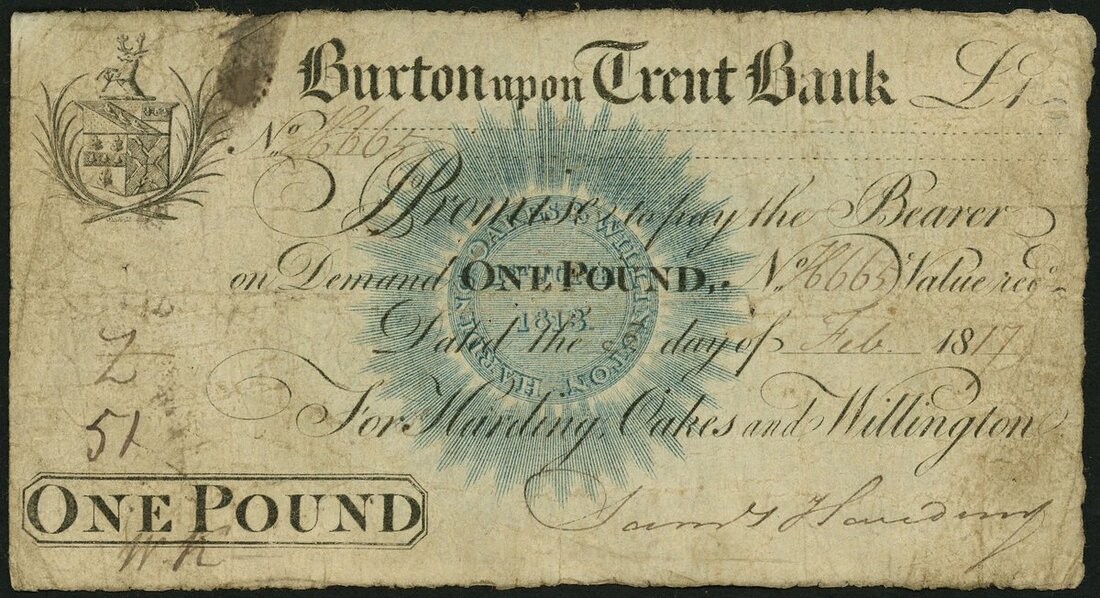 Burton upon Trent Bank £1
No. H665
I Promise to pay the Bearer
on Demand ONE POUND, No. H665 Value recd.
Dated the day of Feb. 1817
For Harding, Oakes and Willington
OAKES & WILLINGTON
1813.
£
51
ONE POUND
W.K